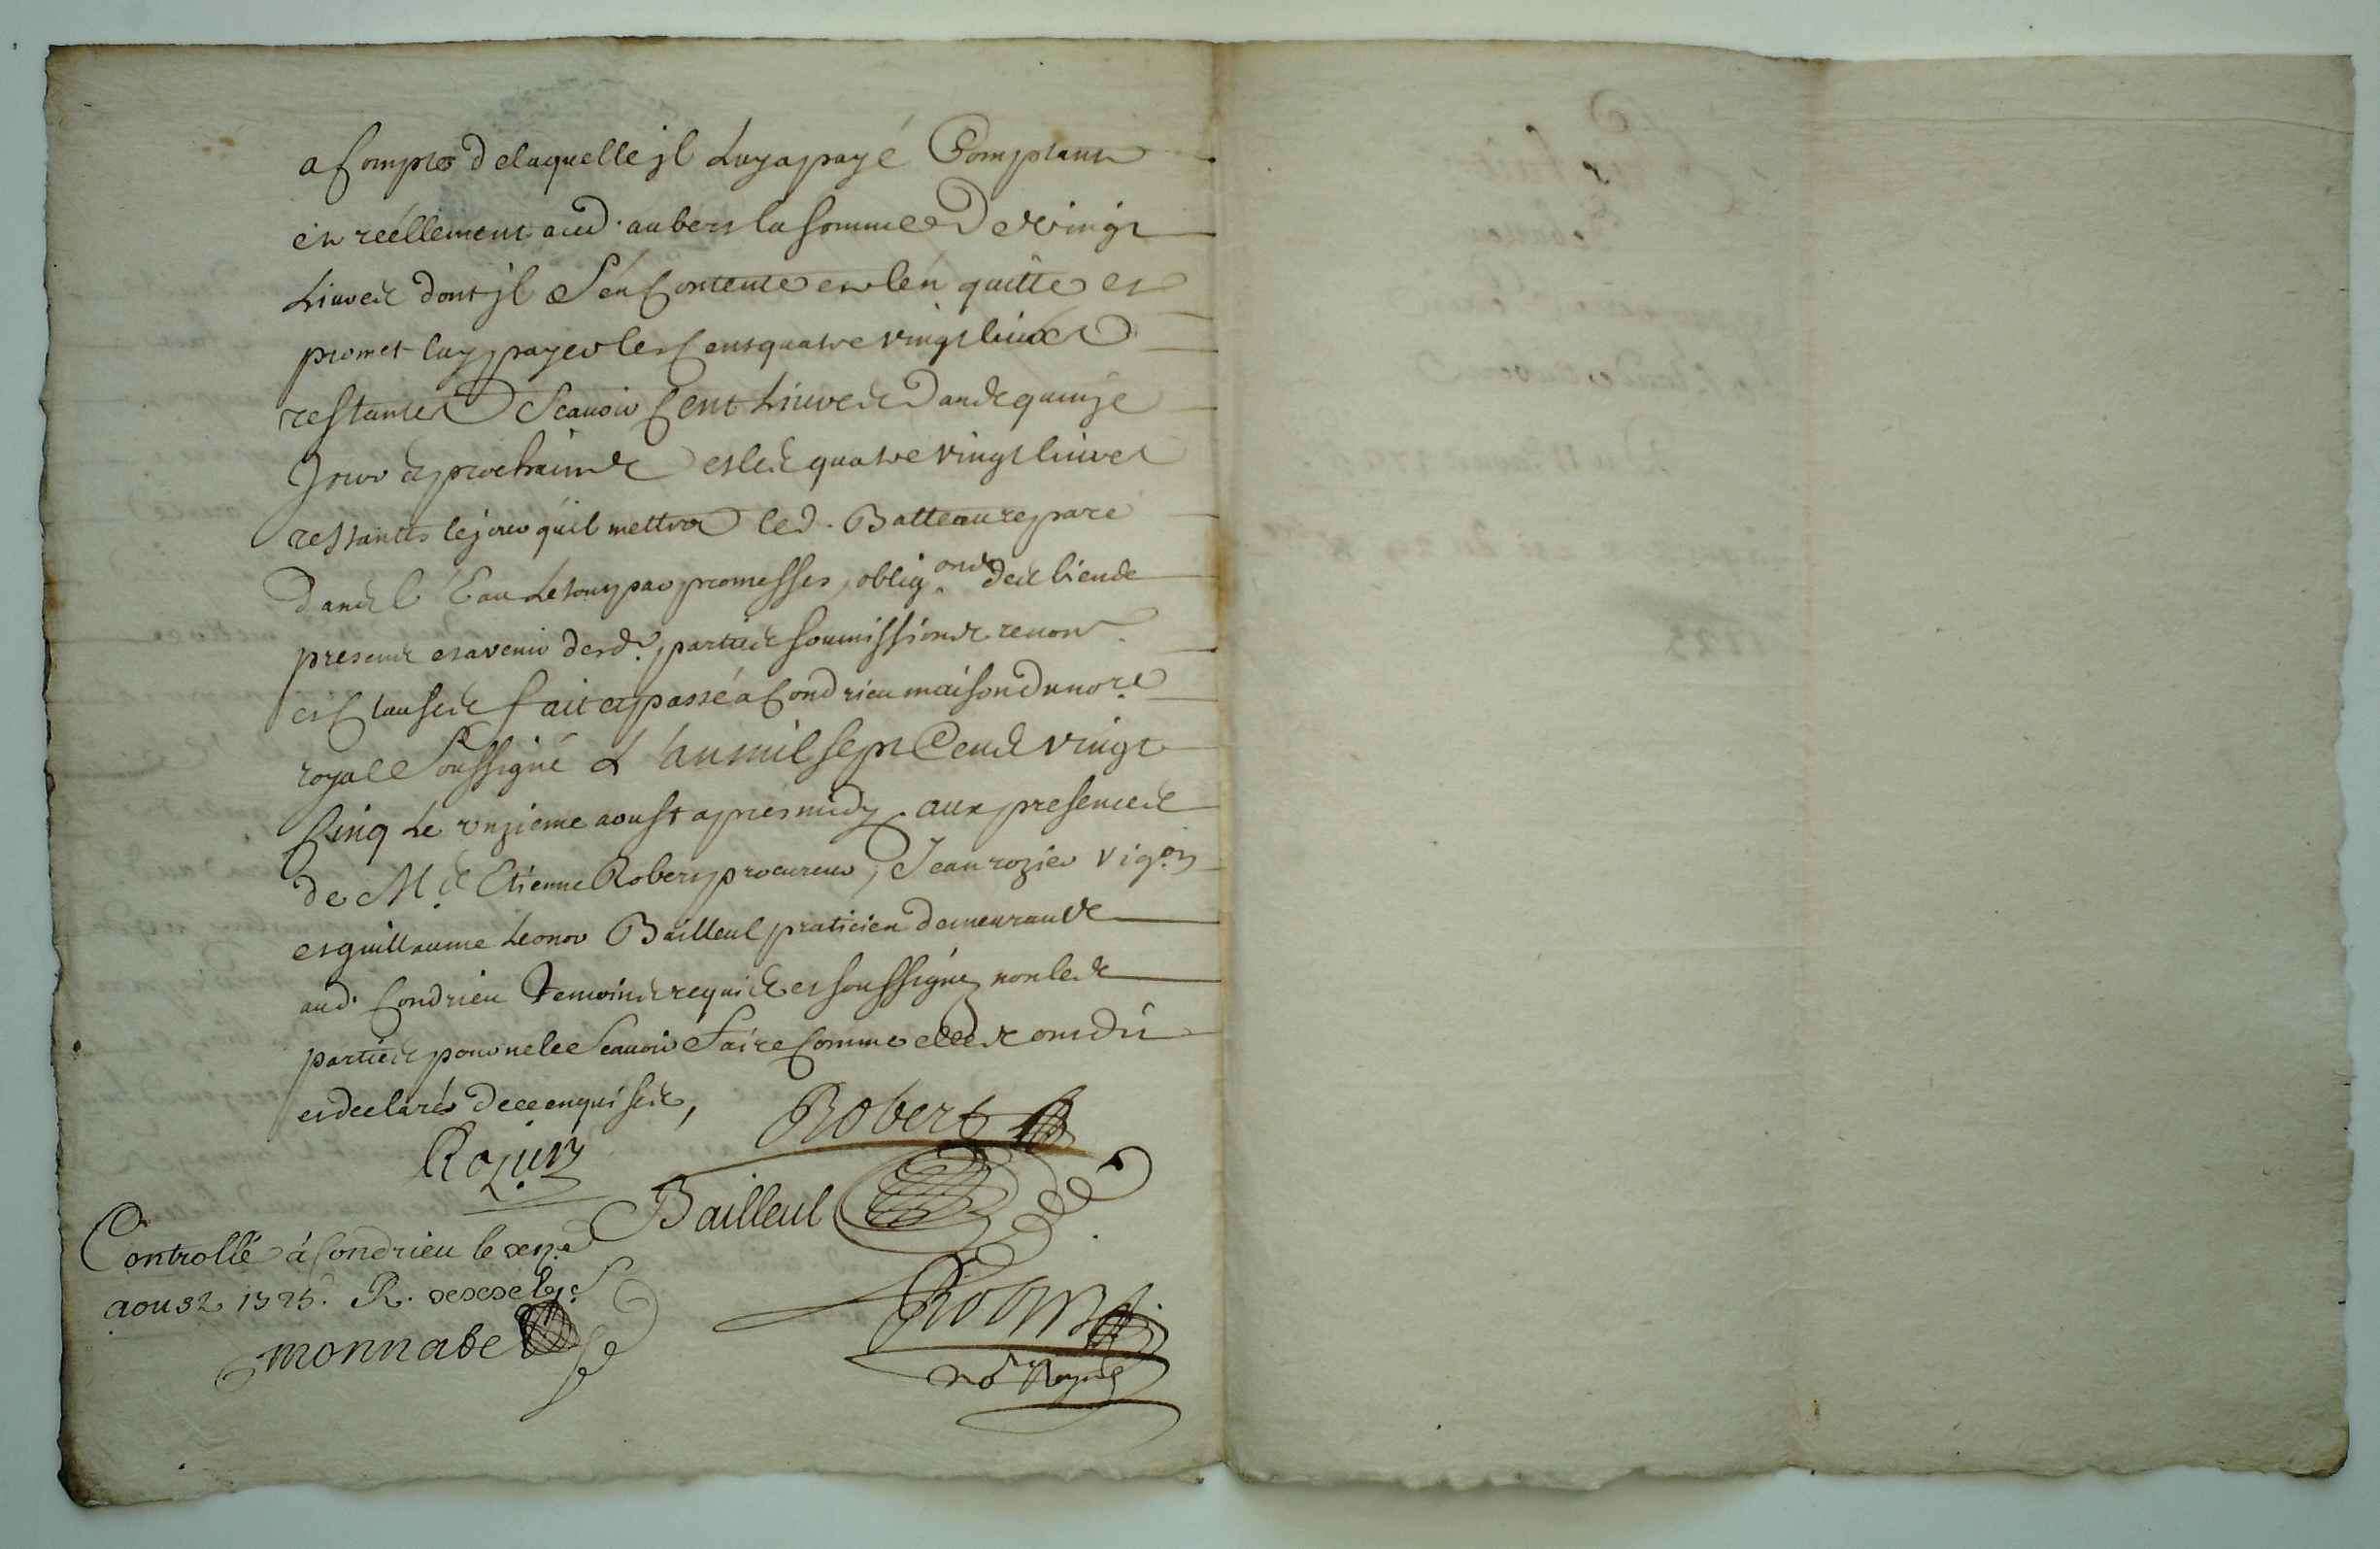 a Compte de laquelle jl Luy a payé Comptant
et réellement aud. aubert la somme De vingt
Livres dont jl S'en Contente et l'en quitte et
promet luy payer les Cent quatre vingt livres
restantes Scavoir Cent Livres Dans quinze
Jours prochains et les quatre vingt livres
restantes le jour qu'il mettra led. Batteau reparé
dans l'Eau Le tout par promesses, oblig.ons des biens
presents et avenir desd. parties soumissions renon.
et Clauses fait et passé a Condrieu maison du no.re
royal Soussigné L'an mil sept Cens vingt
Cinq Le unzieme aoust apres midy aux presences
de M.e Etienne Robert procureur, Jean rozier vig.on
et guillaume Leonor Bailleul praticien demeurants
aud. Condrieu temoins requis et soussignez non les
parties pour ne le Scavoir faire Comme elles ont dit
et declaré de ce enquises,
Robert
Rozier
Bailleul
Controllé à Condrieu le
aoust 1725. R.
monnate
no.re Royal